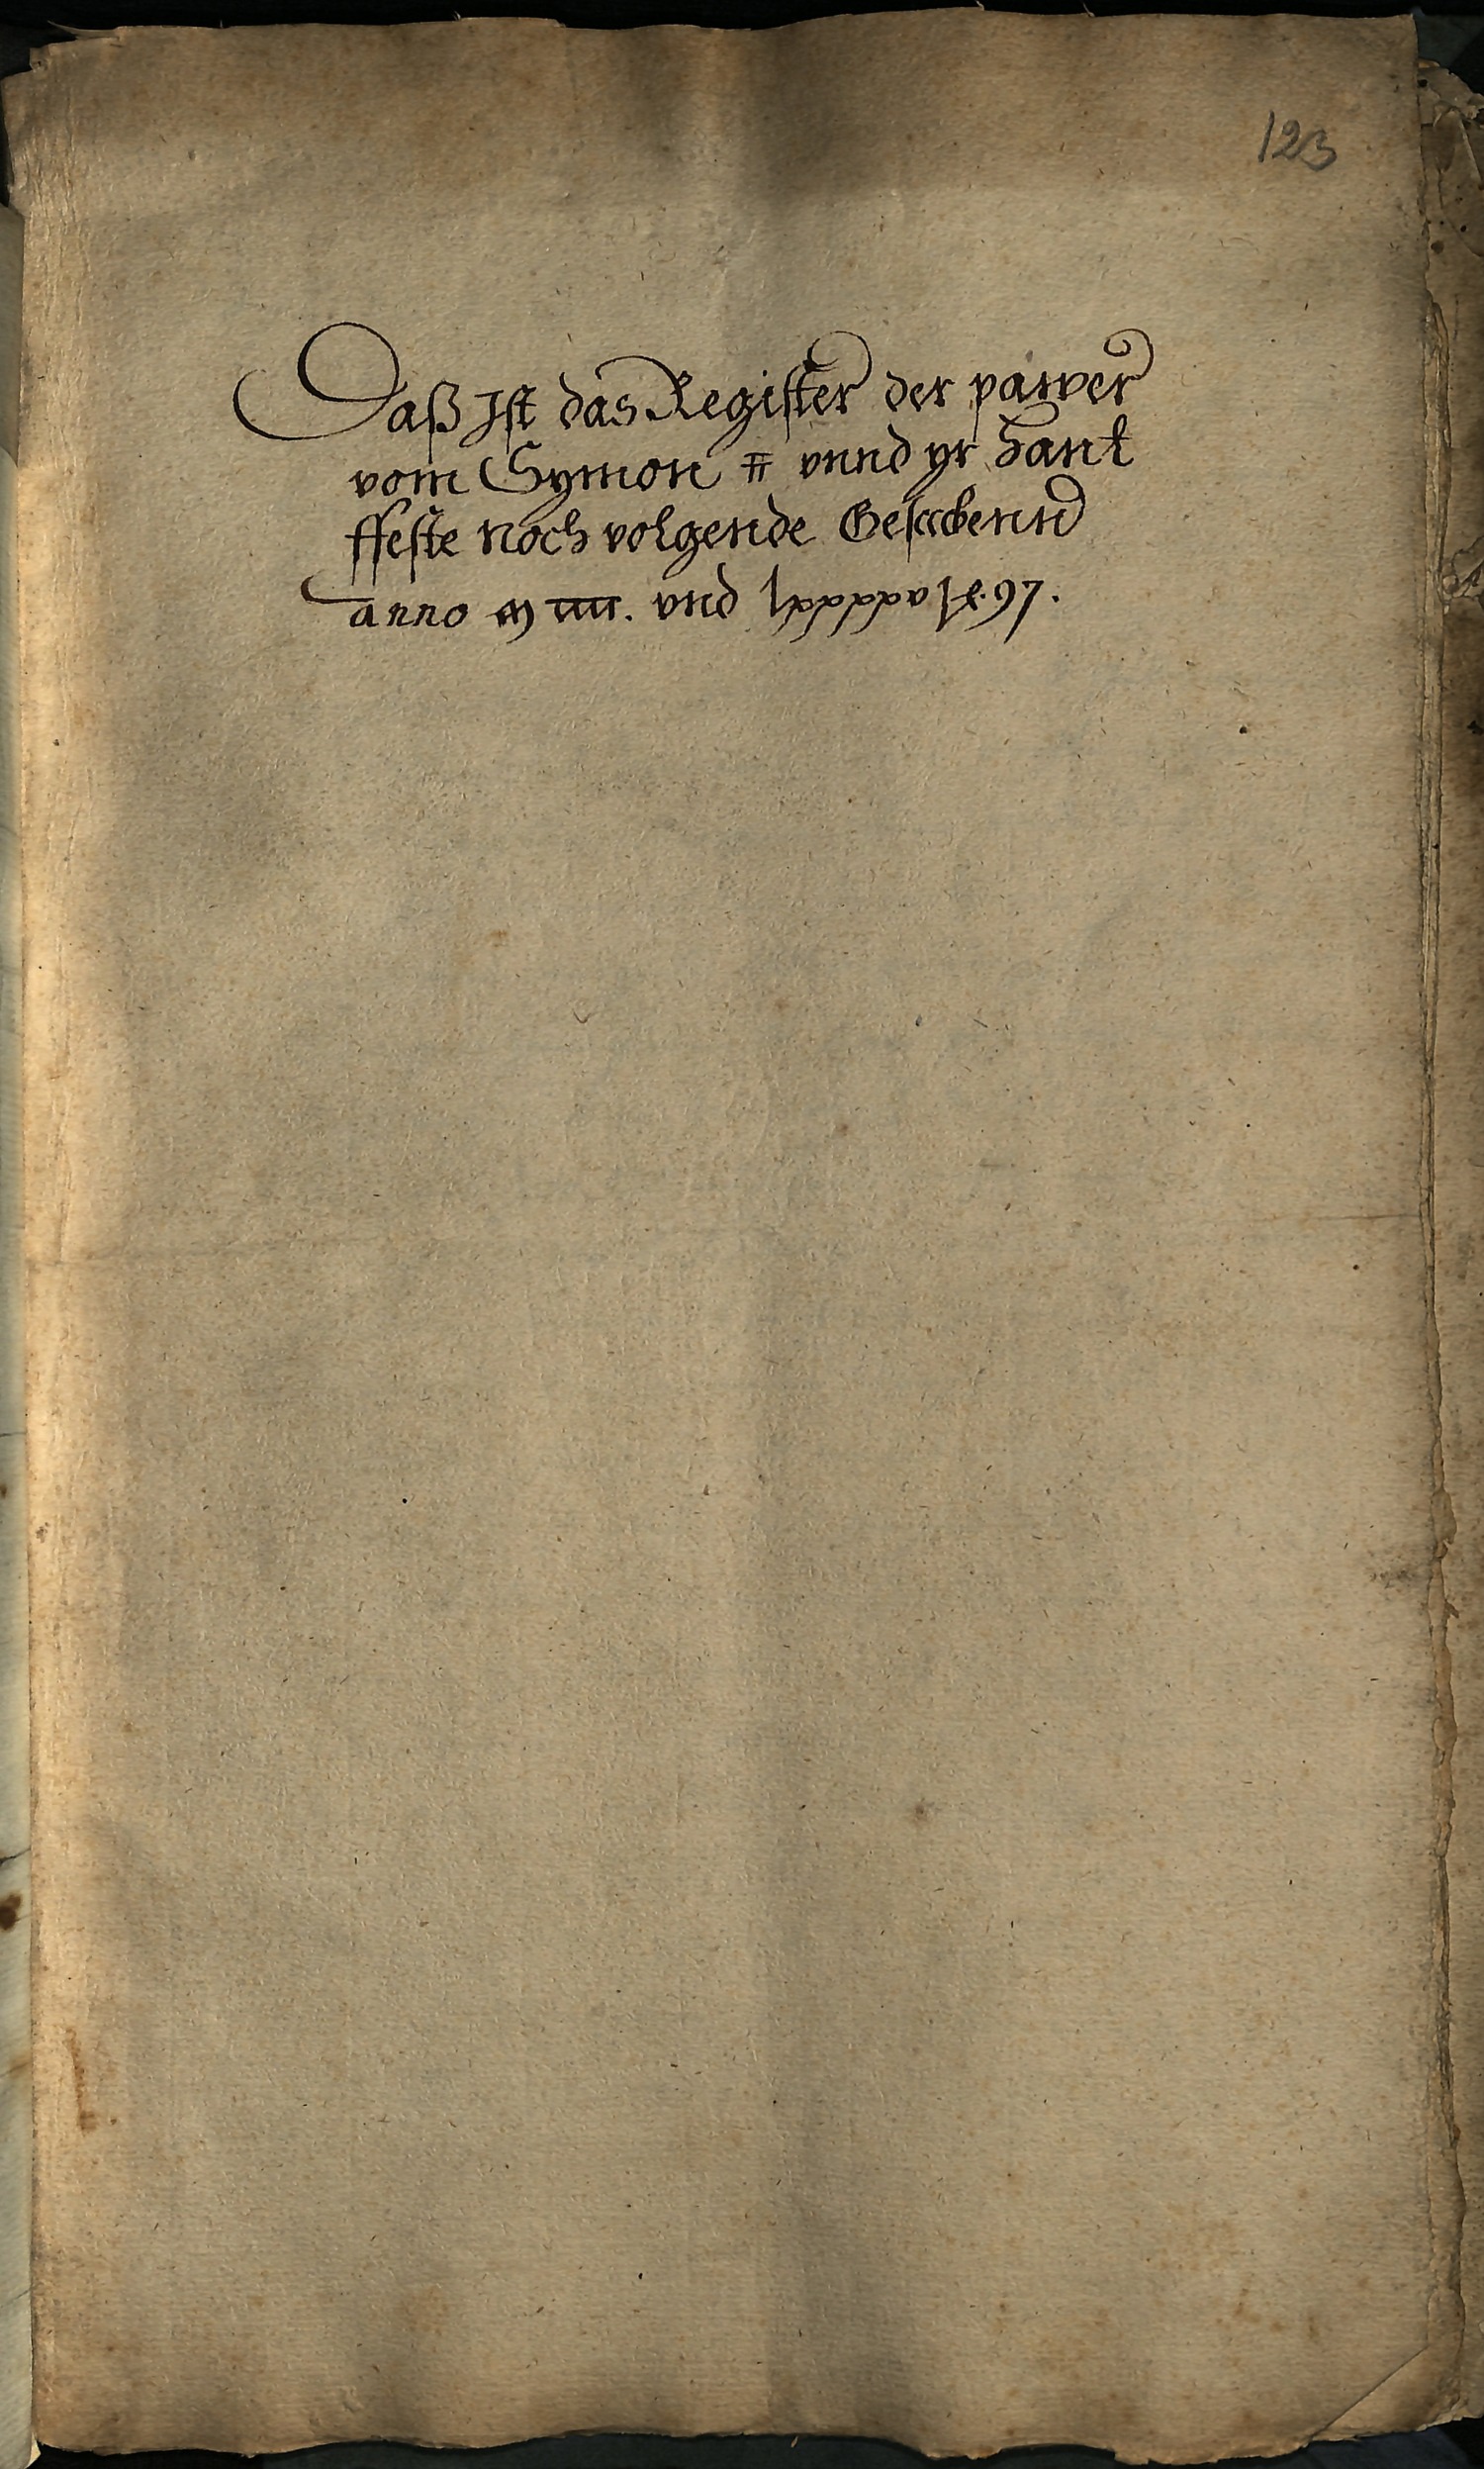 123
Daß Jst das Register der pawer
vom Symon vnnd yr hant
ffeste noch volgende
anno m iiii. vnd lxxxxv 97.